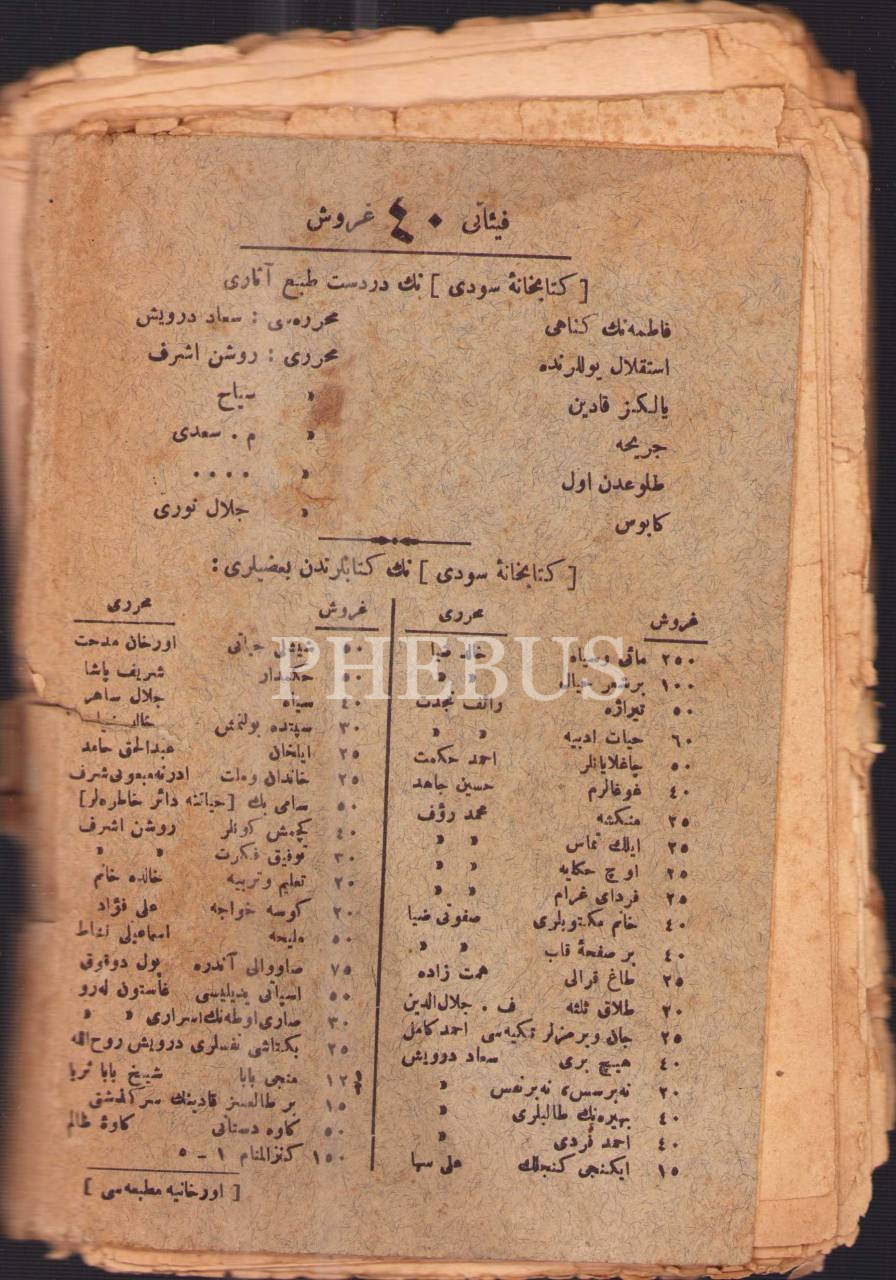 فيئاتى ٤٠ غروش
[ كتابخانهٔ سودى ] نك دردست طبع آثارى
فاطمه‌نك كناهى محرره‌سى : سعاد درويش
استقلال يوللرنده محررى : روشن اشرف
يالكز قادين » سياح
جريحه » م . سعدى
طلوعدن اول » . . . .
كابوس » جلال نورى
[ كتابخانهٔ سودى ] نك كتابلرندن بعضيلرى :
غروش محررى
٢٥٠ مائى وسياه خالد ضيا
١٠٠ بر شعر خيال » »
٥٠ تيراژه رائف نجدت
٦٠ حيات ادبيه » »
٥٠ چاغلايانلر احمد حكمت
٤٠ غوغالرم حسين جاهد
٢٥ منكشه محمد رؤف
٢٥ ايلك تماس » »
٢٥ اوچ حكايه » »
٢٥ فرداى غرام » »
٤٠ خانم مكتوبلرى صفوتى ضيا
٤٠ بر صفحهٔ قاب » »
٢٥ طاغ قرالى همت زاده
٢٠ طلاق ثلثه ف . جلال‌الدين
٢٥ جان ويرمزلر تكيه‌سى احمد كامل
٤٠ هيچ برى سعاد درويش
٢٠ نه‌برسس، نه‌برنفس »
٤٠ بهيره‌نك طالبلرى »
٤٠ احمد فردى »
١٥ ايكنجى كنجلك على سها
غروش محررى
٥٠ شيشلى حياتى اورخان مدحت
٥٠ حكمدار شريف پاشا
٤٠ سياه جلال ساهر
٣٠ سپتده بولنمش خالد ضيا
٢٥ ايلخان عبدالحق حامد
٢٥ خاندان وملت ادرنه‌مبعوثى‌شرف
٥٠ سامى بك [حياتنه دائر خاطره‌لر]
٤٠ كچمش كونلر روشن اشرف
٣٠ توفيق فكرت » »
٢٠ تعليم وتربيه خالده خانم
٢٠ كوسه خواجه على فؤاد
٥٠ مليحه اسماعيل نشاط
٧٥ صاووالى آندره پول دوقوق
٥٠ اسپاتى يديليسى غاستون له‌رو
٣٠ صارى اوطه‌نك اسرارى » »
٢٥ بكتاشى نفسلرى درويش روح‌الله
١٢ منجى بابا شيخ بابا ثريا
١٥ بر طالعسز قادينك سركذشتى
٥٠ كاوه دستانى كاوهٔ ظالم
١٥٠ كنزالمنام ١ - ٥
[ اورخانيه مطبعه‌سى ]
PHEBUS